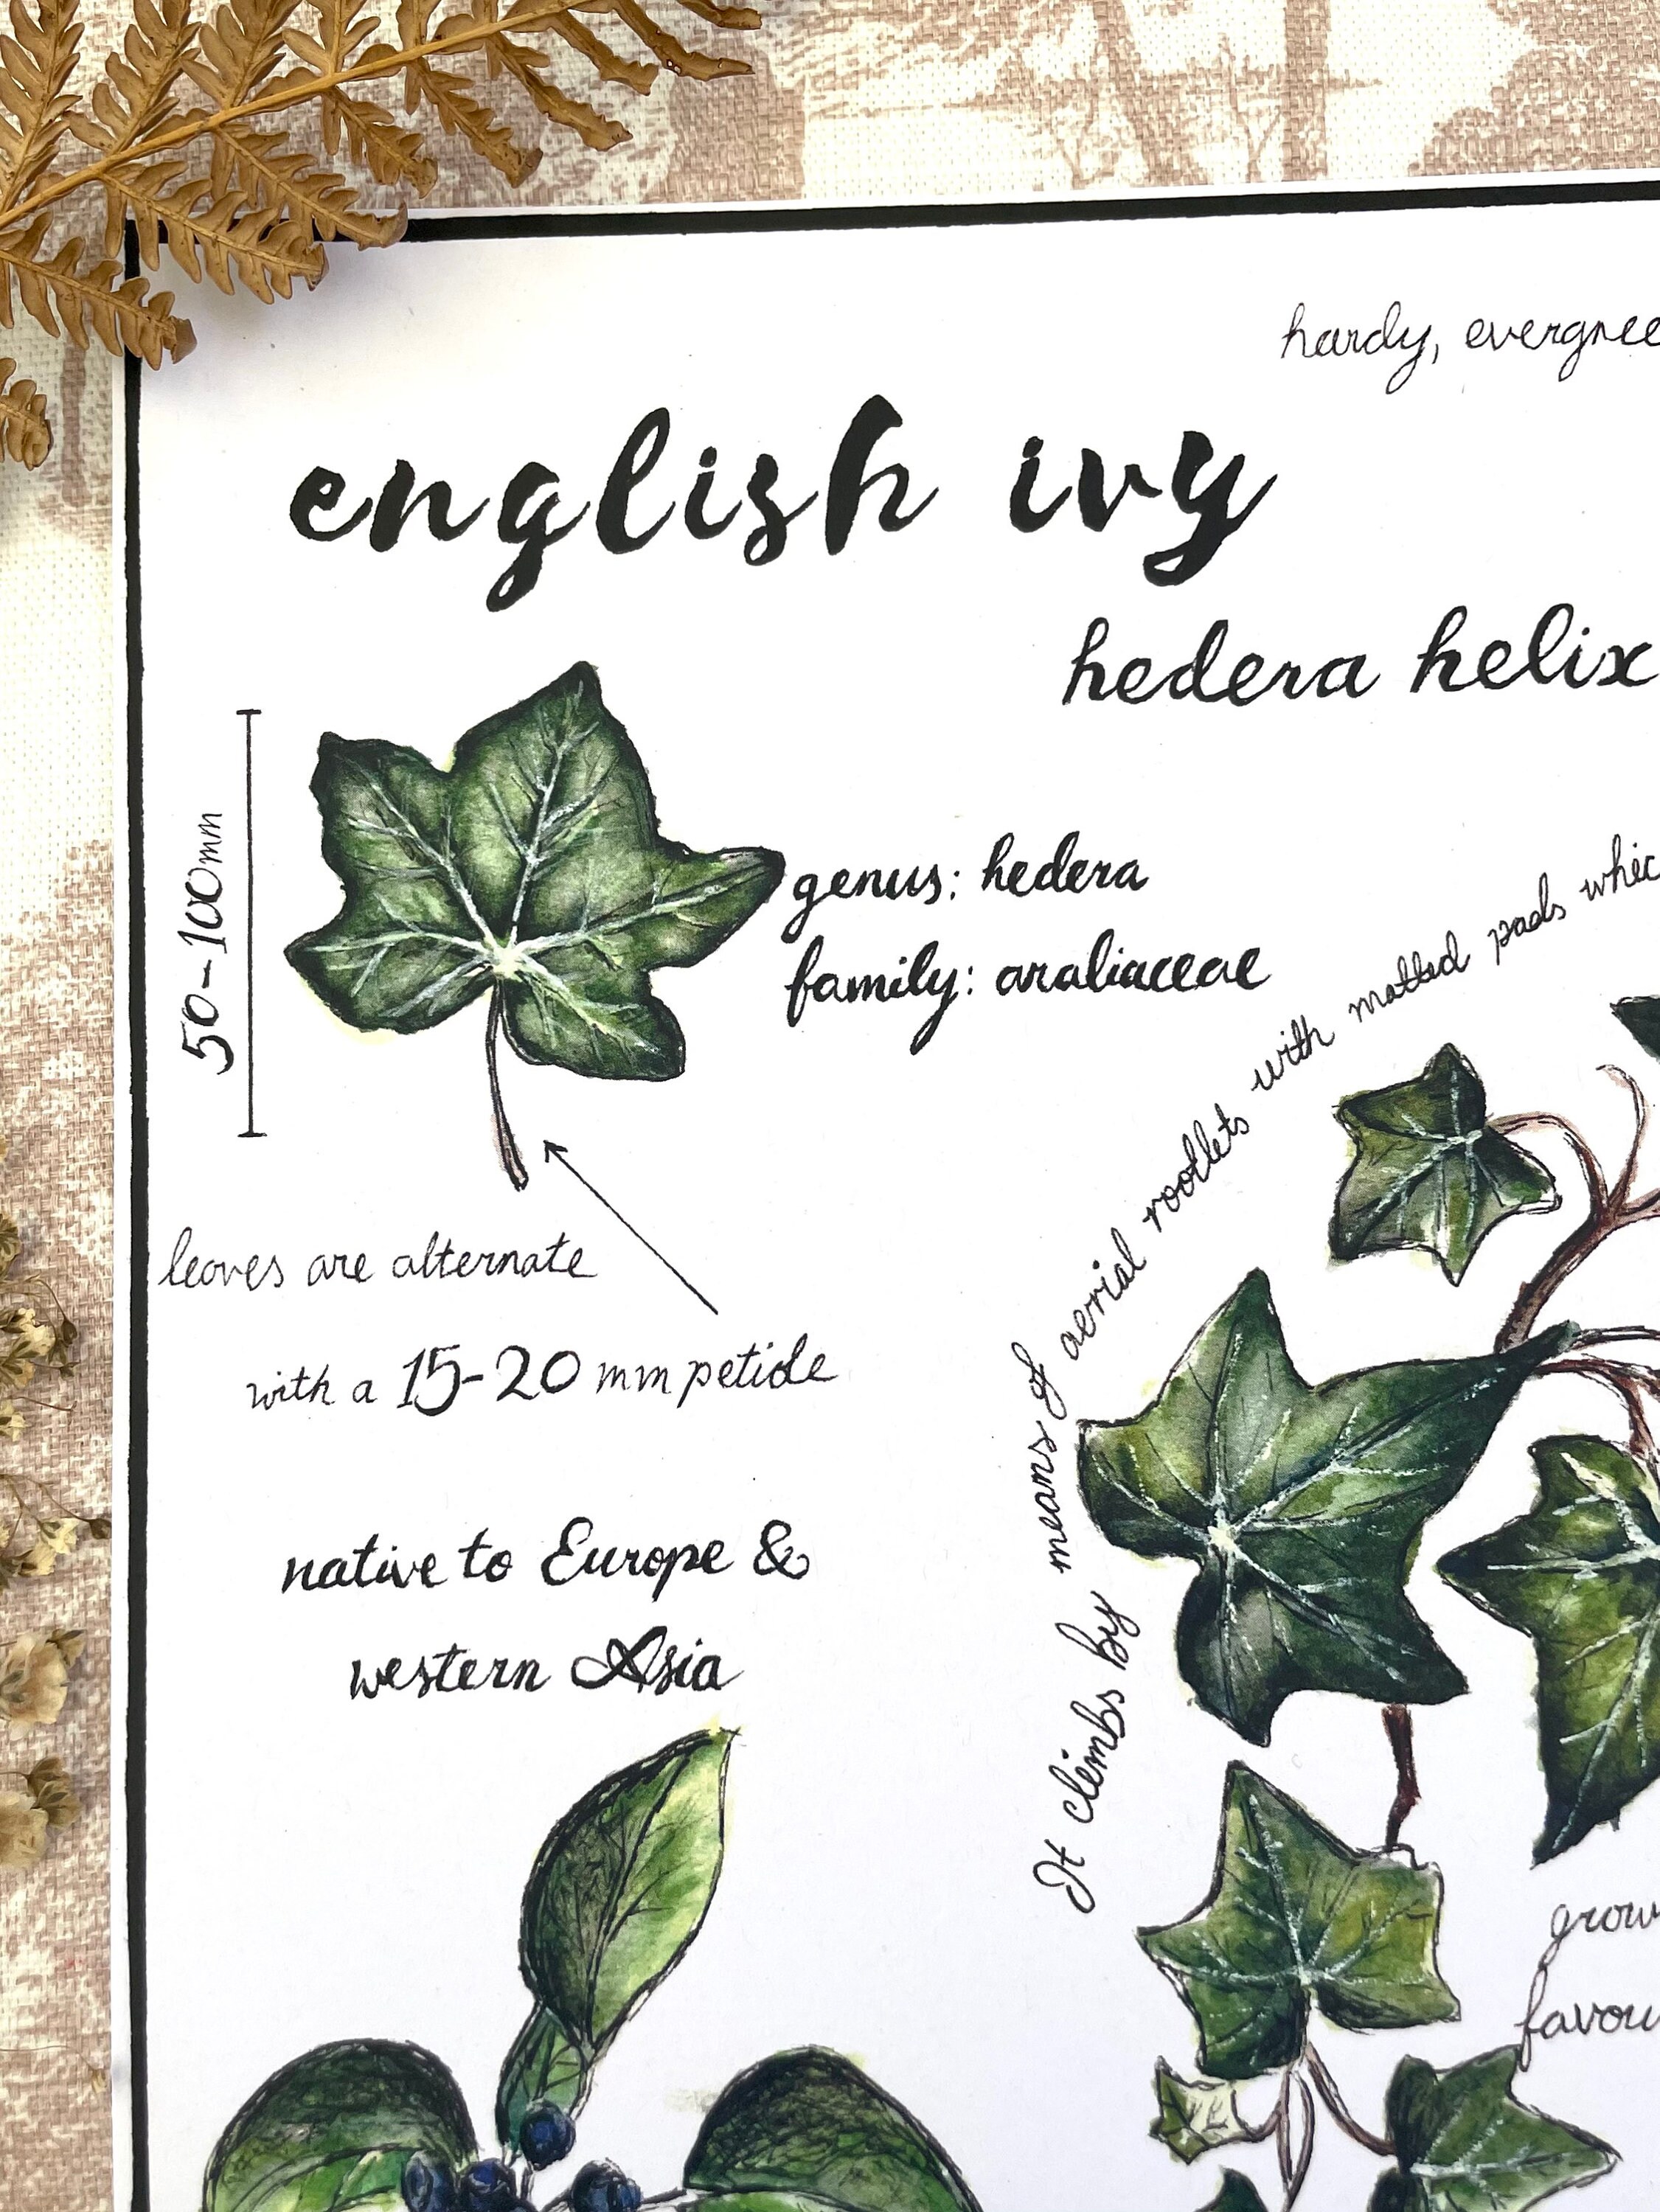 hardy, evergree
english ivy
hedera helix
50-100mm
genus: hedera
family: araliaceae
It climbs by means of aerial rootlets with matted pads whic
leaves are alternate
with a 15-20 mm petiole
native to Europe &
western Asia
grow
favou